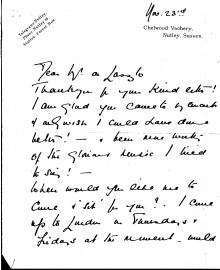 Nov. 23rd
Chelwood Vachery,
Nutley, Sussex.
Dear Mr de Laszlo
Thank you for your kind letter!
I am glad you came to my concert
& only wish I could have done
better! — & been more worthy
of the glorious music I tried
to sing! —
When would you like me to
come & 'sit' for you? . I come
up to London on Thursdays &
Fridays at the moment. would